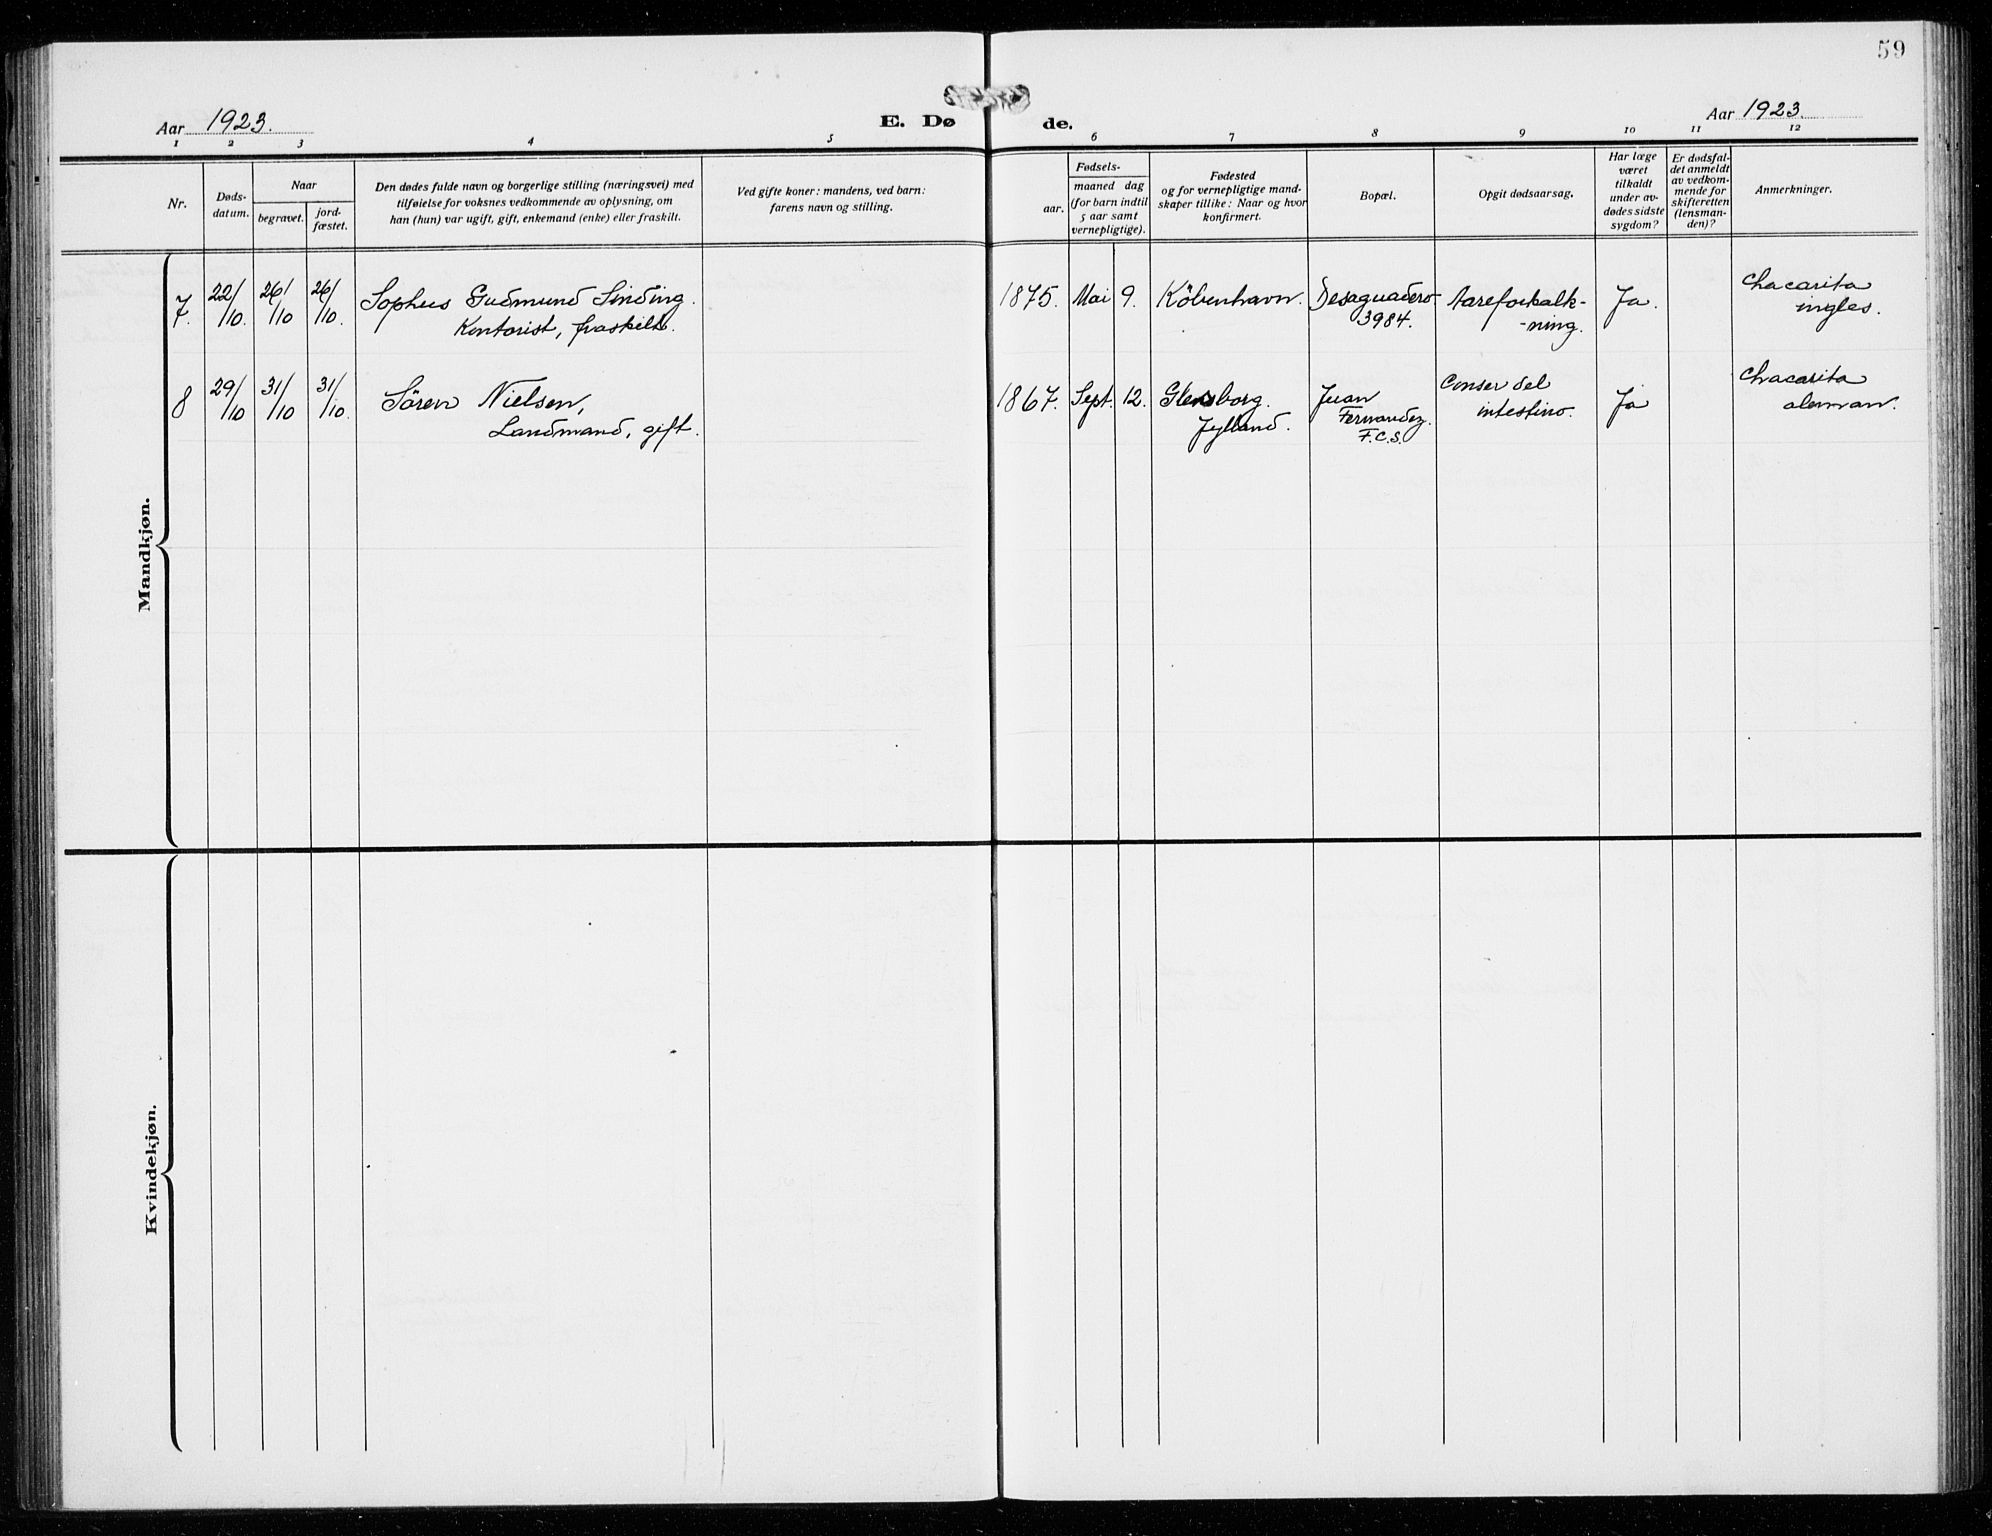 59
Aar 1923.
E. Dø de.
Aar 1923.
1 2 3 4 5 6 7 8 9 10 11 12
Nr.
Døds-
datum.
Naar
begravet.
jord-
fæstet.
Den dødes fulde navn og borgerlige stilling (næringsvei) med
tilføielse for voksnes vedkommende av oplysning, om
han (hun) var ugift, gift, enkemand (enke) eller fraskilt.
Ved gifte koner: mandens, ved barn:
farens navn og stilling.
Fødsels-
aar.
maaned dag
(for barn indtil
5 aar samt
vernepligtige).
Fødested
og for vernepligtige mand-
skaper tillike: Naar og hvor
konfirmert.
Bopæl.
Opgit dødsaarsag.
Har læge
været
tilkaldt
under av-
dødes sidste
sygdom?
Er dødsfal-
det anmeldt
av vedkom-
mende for
skifteretten
(lensman-
den)?
Anmerkninger.
Mandkjøn.
7. 22/10 26/10 26/10. Sophus Gudmund Sinding.
Kontorist, fraskilt.
1875. Mai 9. Köbenhavn.
Desaguadero
3984.
Aareforkalk-
-ning.
Ja.
Chacarita
ingles.
8 29/10 31/10 31/10. Sören Nielsen,
Landmand, gift.
1867. Sept. 12.
Jylland.
Juan
Fernandez.
F.C.S.
Conser del
intestino.
Ja
Chacarita
aleman.
Kvindekjøn.